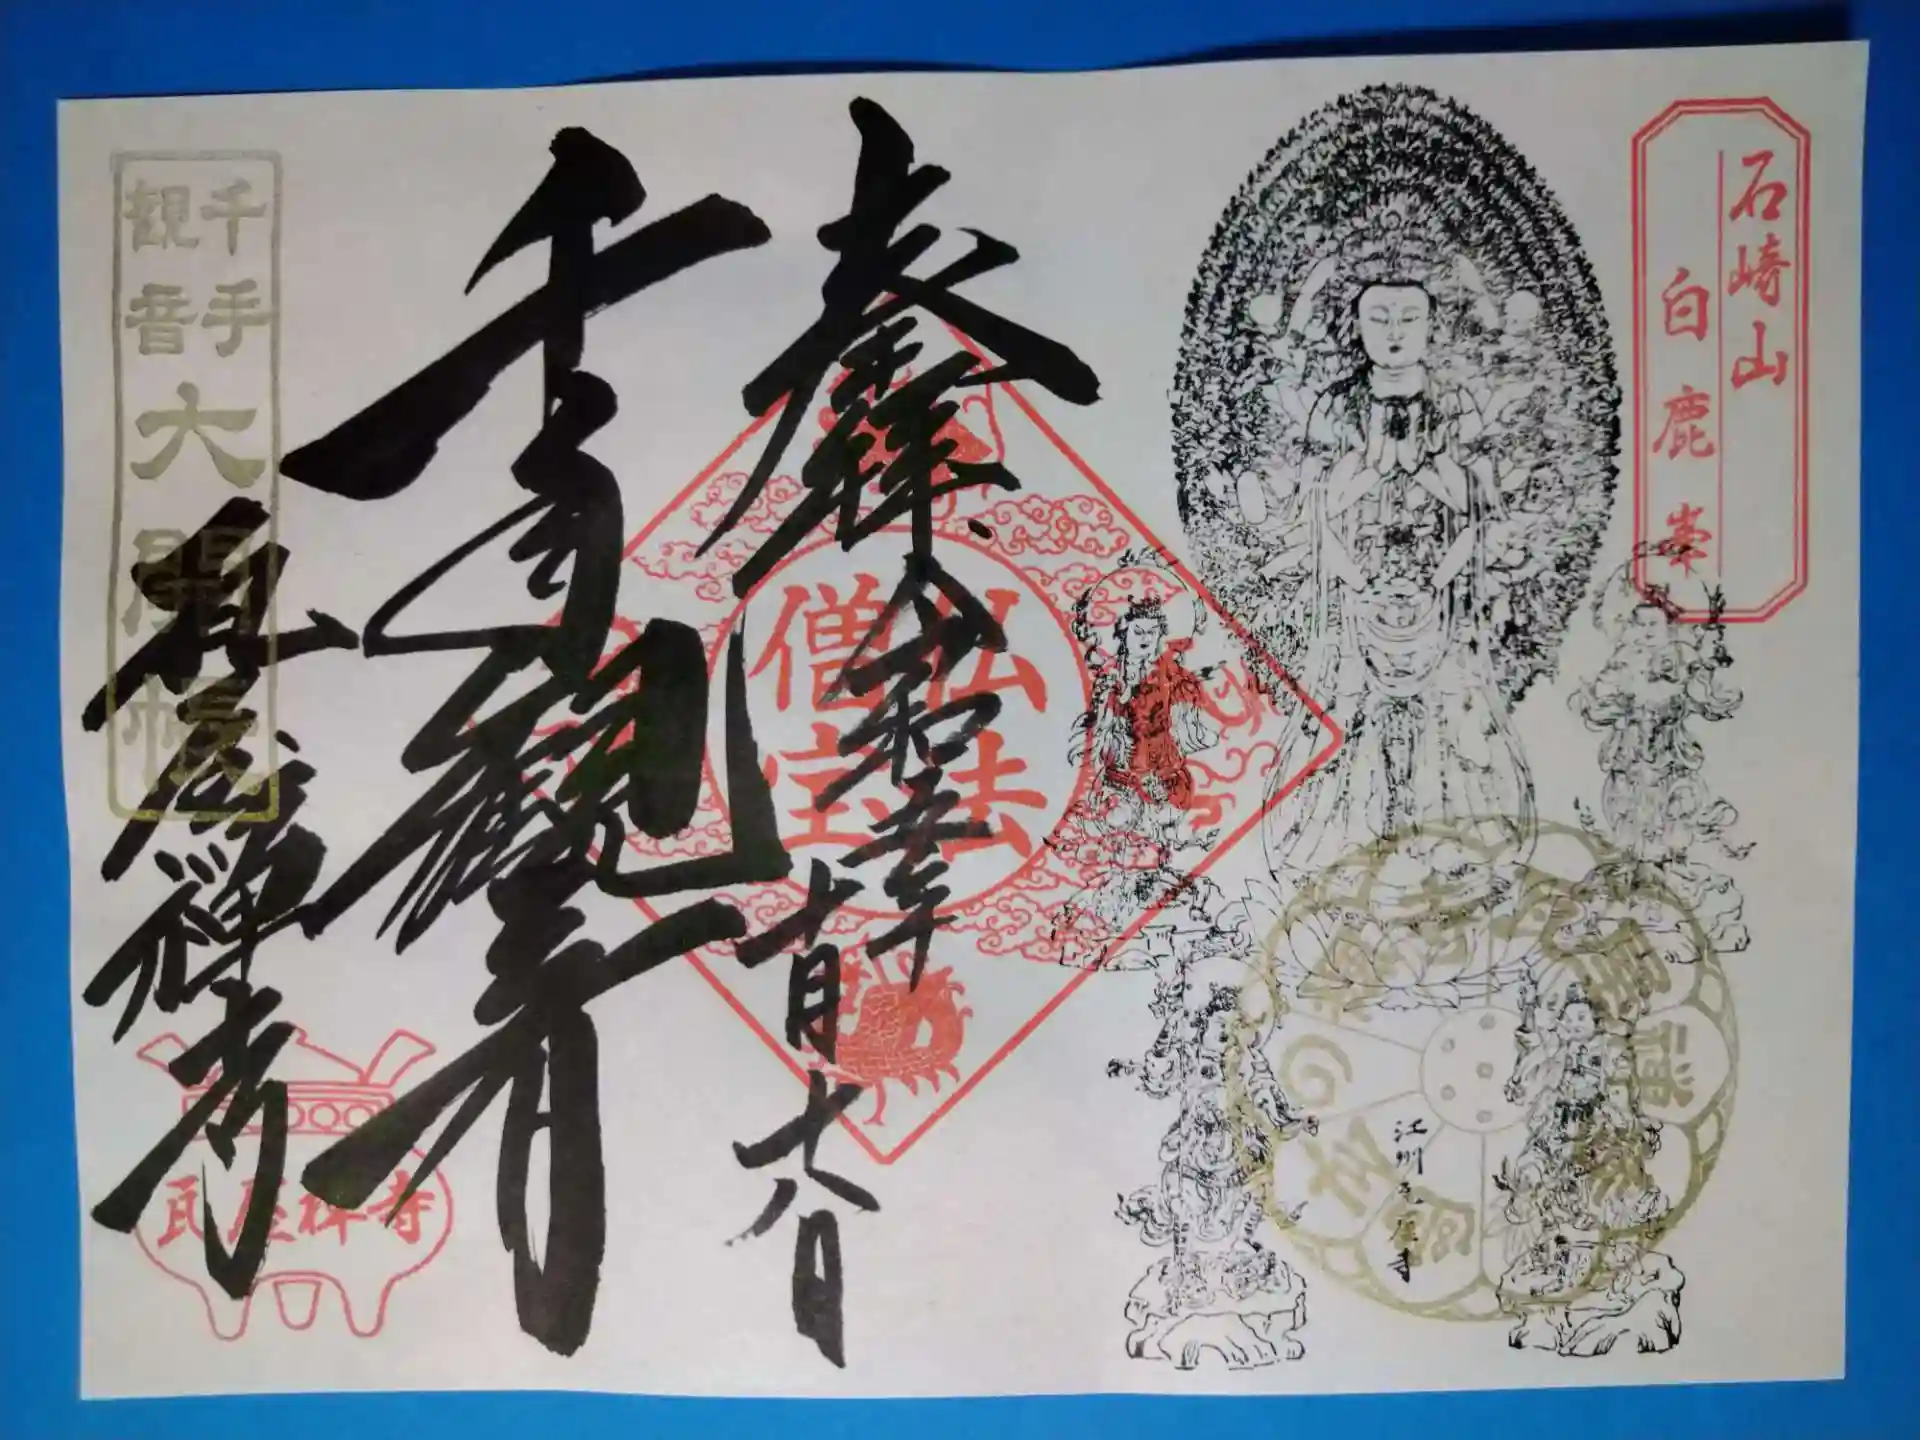 石崎山
白鹿峯
奉拝
令和五年
十一月十八日
仏法
僧宝
千手観音
千手
観音
大開帳
瓦屋禅寺
瓦屋禅寺
江州瓦屋寺